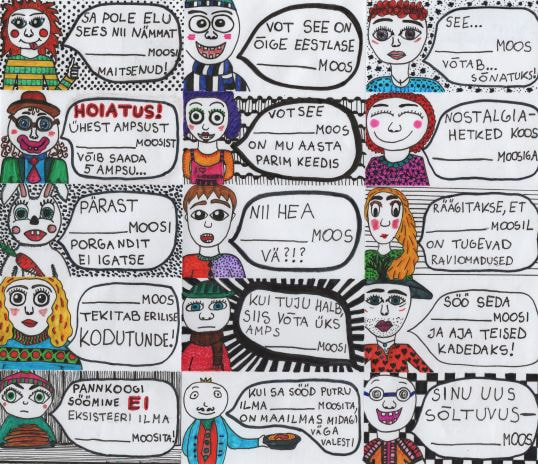 SA POLE ELU
SEES NII NÄMMAT
________ MOOSI
MAITSENUD!
VOT SEE ON
ÕIGE EESTLASE
________ MOOS
SEE...
________ MOOS
VÕTAB...
SÕNATUKS!
HOIATUS!
ÜHEST AMPSUST
________ MOOSIST
VÕIB SAADA
5 AMPSU...
VOT SEE
________ MOOS
ON MU AASTA
PARIM KEEDIS
NOSTALGIA-
HETKED KOOS
________ MOOSIGA
PÄRAST
________ MOOSI
PORGANDIT
EI IGATSE
NII HEA
________ MOOS
VÄ?!?
RÄÄGITAKSE, ET
________ MOOSIL
ON TUGEVAD
RAVIOMADUSED
________ MOOS
TEKITAB ERILISE
KODUTUNDE!
KUI TUJU HALB,
SIIS VÕTA ÜKS
AMPS
________ MOOSI
SÖÖ SEDA
________ MOOSI
JA AJA TEISED
KADEDAKS!
PANNKOOGI
SÖÖMINE EI
EKSISTEERI ILMA
________ MOOSITA!
KUI SA SÖÖD PUTRU
ILMA ________ MOOSITA,
ON MAAILMAS MIDAGI
VÄGA
VALESTI
SINU UUS
SÕLTUVUS-
________ MOOS